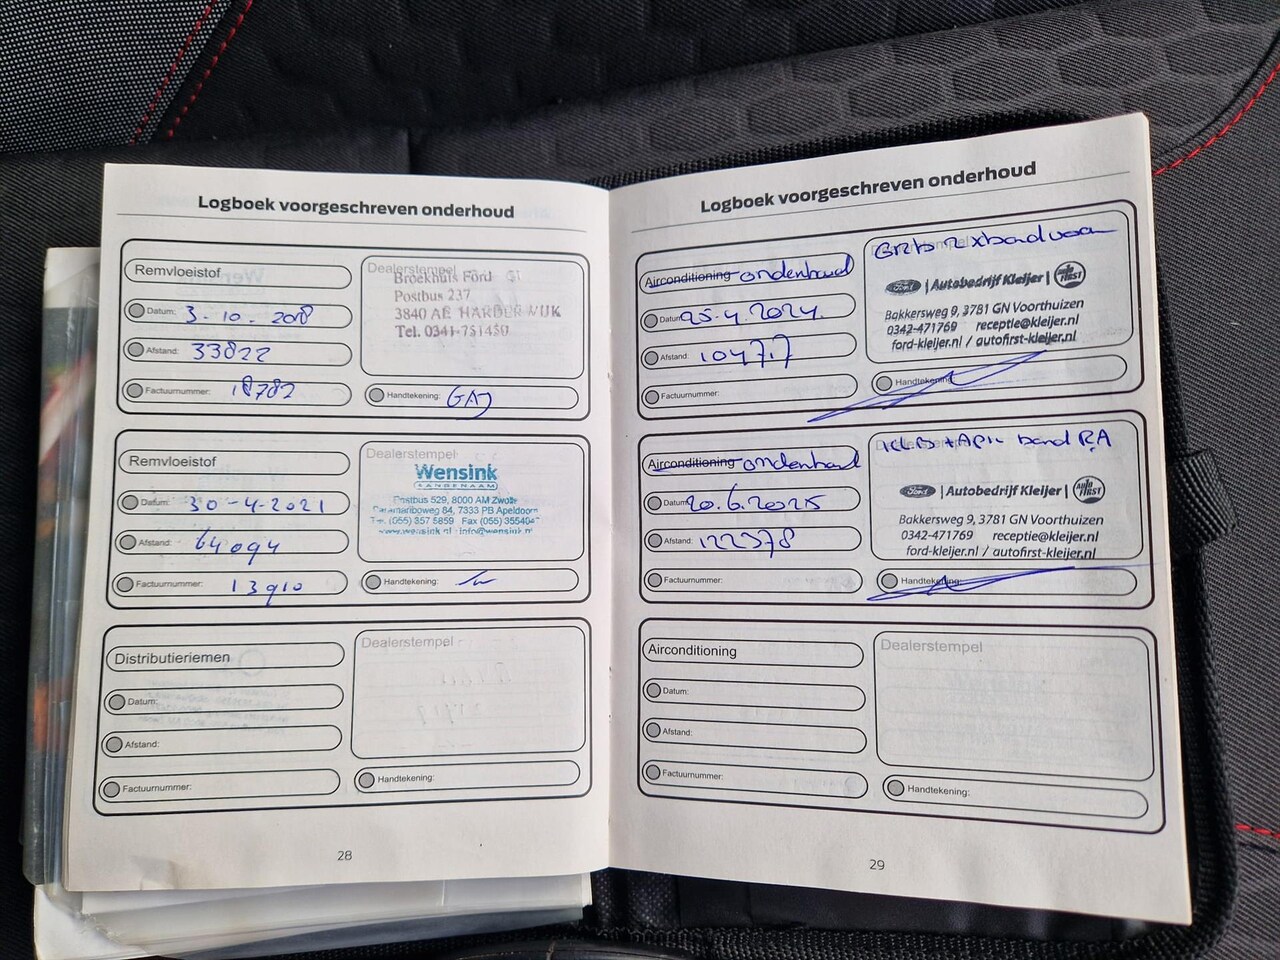 Logboek voorgeschreven onderhoud
Remvloeistof
Datum: 3-10-2018
Afstand: 33822
Factuurnummer: 18782
Dealerstempel
Broekhuis Ford
Postbus 237
3840 AE HARDERWIJK
Tel. 0341-751450
Handtekening:
Remvloeistof
Datum: 30-4-2021
Afstand: 64094
Factuurnummer: 13910
Dealerstempel
Wensink
AANGENAAM
Postbus 529, 8000 AM Zwolle
Paramariboweg 84, 7333 PB Apeldoorn
(055) 357 5859 Fax (055) 355404
www.wensink.nl info@wensink.nl
Handtekening:
Distributieriemen
Datum:
Afstand:
Factuurnummer:
Dealerstempel
Handtekening:
28
Logboek voorgeschreven onderhoud
Airconditioning onderhoud
Datum: 25.4.2024
Afstand: 104717
Factuurnummer:
2x band voor
Ford | Autobedrijf Kleijer | AUTO FIRST
Bakkersweg 9, 3781 GN Voorthuizen
0342-471769 receptie@kleijer.nl
ford-kleijer.nl / autofirst-kleijer.nl
Handtekening:
Airconditioning onderhoud
Datum: 20.6.2025
Afstand: 122378
Factuurnummer:
KLB + APK band RA
Ford | Autobedrijf Kleijer | AUTO FIRST
Bakkersweg 9, 3781 GN Voorthuizen
0342-471769 receptie@kleijer.nl
ford-kleijer.nl / autofirst-kleijer.nl
Handtekening:
Airconditioning
Datum:
Afstand:
Factuurnummer:
Dealerstempel
Handtekening:
29